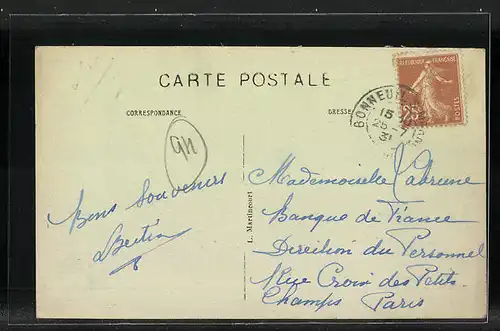 CARTE POSTALE
CORRESPONDANCE
DRESSE
REPUBLIQUE FRANCAISE
25
POSTES
BONNEUIL
15
25 - 7
31
L. Martincourt
Bons Souvenirs
Mademoiselle Cabrene
Banque de France
Direction du Personnel
Rue Croix des Petits
Champs Paris